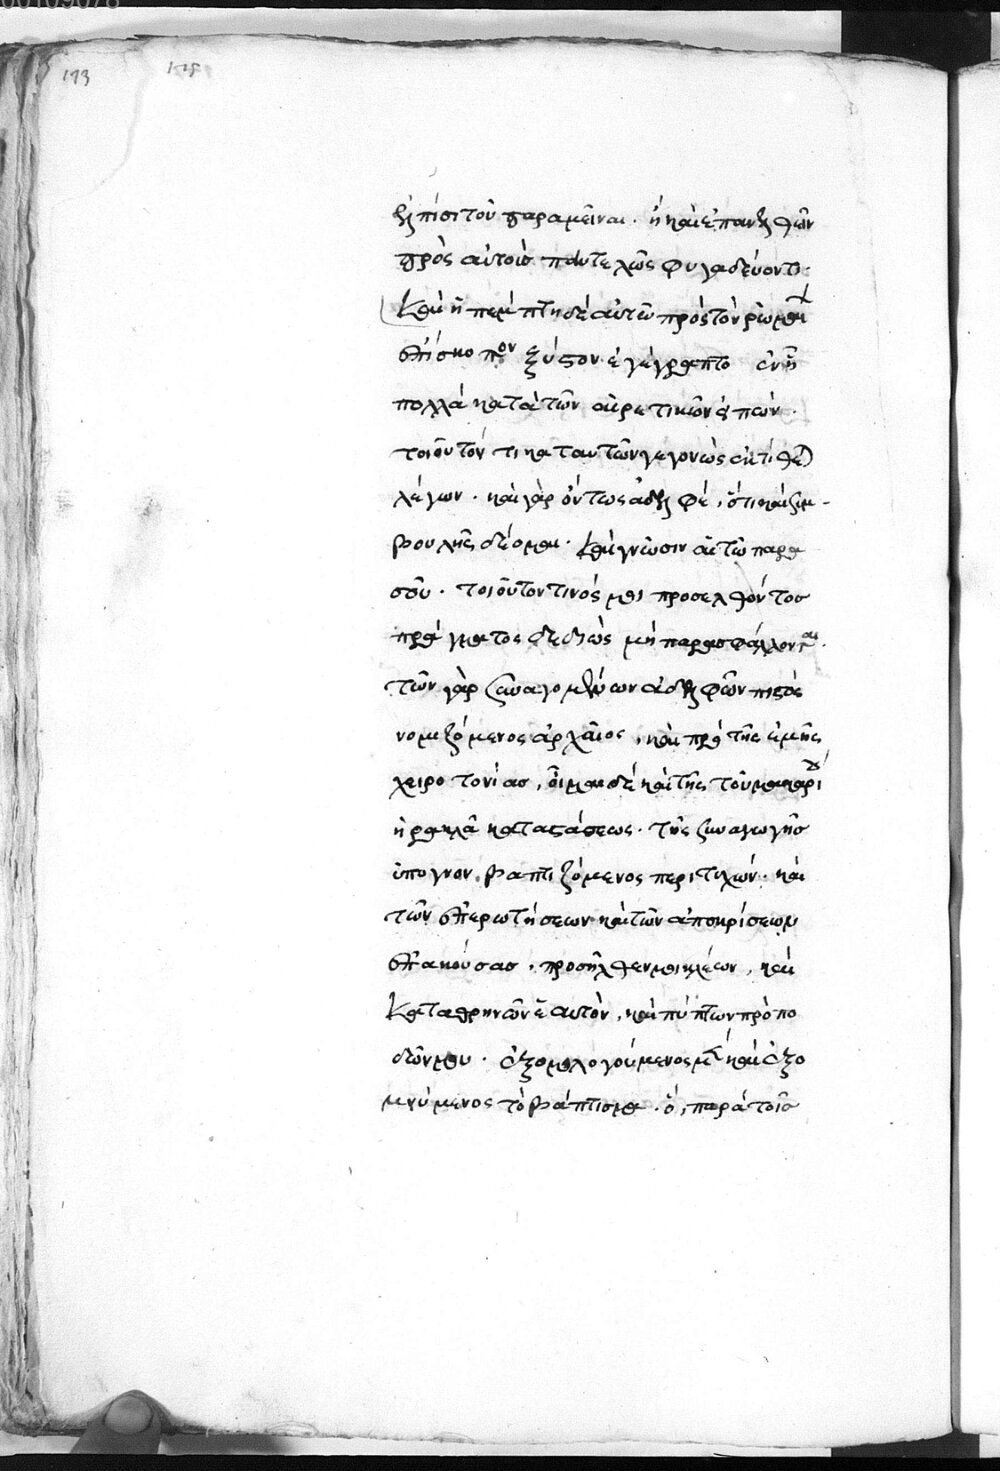 00109078
193
ἐλπίσι τοῦ παραμεῖναι. ἢ καὶ ἐπανελθεῖν
πρὸς αὐτοὺς παντελῶς φυγαδεύοντι.
Καὶ ἡ πέμπτη δὲ αὐτῶ πρὸς τὸν ῥωμαί
ἐπίσκοπον ξύστον ἐγέγραπτο ἐν ᾗ
πολλὰ κατὰ τῶν αἱρετικῶν εἰπὼν.
τοιοῦτόν τι κατ αυτὸν γεγονὼς ἐκτίθε
λέγων. καὶ γὰρ ὄντως ἀδελφέ, ὅτι καὶ συμ-
βουλῆς δέομαι. Καὶ γνώσιν αἰτῶ παρα
σοῦ. τοιοῦτον τινός μοι προσελθόντος
πράγματος δεδιὼς μὴ παρασφάλλομαι.
τῶν γὰρ συναγομένων ἀδελφῶν πιστὸς
νομιζόμενος ἀρχαῖος, καὶ πρὸ τῆς ἐμῆς
χειροτονίας, οἶμαι δὲ καὶ τῆς τοῦ μακαρίου
ἡρακλᾶ καταστάσεως. τῆς συναγωγῆς
ὑπόγυον βαπτιζόμενος περιτυχών. καὶ
τῶν ἐπερωτήσεων καὶ τῶν ἀποκρίσεων
ἐπακούσας, προσῆλθεν μοι κλέων, καὶ
Καταθρηνῶν ἑαυτὸν, καὶ πίπτων πρὸ πο
δῶν μου. ἐξομολογούμενος μὲν καὶ ἐξο
μνύμενος τὸ βάπτισμα. ὅ, παρὰ τοῖς